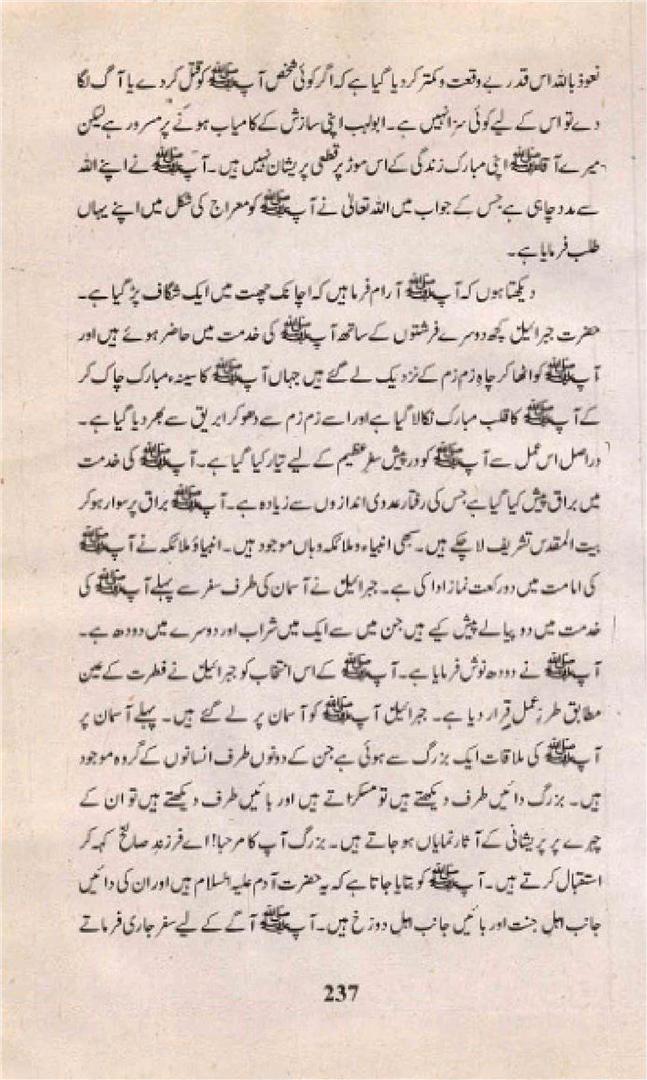 نعوذ باللہ اس قدر بے وقعت و کمتر کر دیا گیا ہے کہ اگر کوئی شخص آپ ﷺ کو قتل کر دے یا آگ لگا
دے تو اس کے لیے کوئی سزا نہیں ہے۔ ابولہب اپنی سازش کے کامیاب ہونے پر مسرور ہے لیکن
میرے آقا ﷺ اپنی مبارک زندگی کے اس موڑ پر قطعی پریشان نہیں ہیں۔ آپ ﷺ نے اپنے اللہ
سے مدد چاہی ہے جس کے جواب میں اللہ تعالیٰ نے آپ ﷺ کو معراج کی شکل میں اپنے یہاں
طلب فرمایا ہے۔
دیکھتا ہوں کہ آپ ﷺ آرام فرما ہیں کہ اچانک چھت میں ایک شگاف پڑ گیا ہے۔
حضرت جبرائیلؑ کچھ دوسرے فرشتوں کے ساتھ آپ ﷺ کی خدمت میں حاضر ہوئے ہیں اور
آپ ﷺ کو اٹھا کر چاہِ زم زم کے نزدیک لے گئے ہیں جہاں آپ ﷺ کا سینہء مبارک چاک کر
کے آپ ﷺ کا قلب مبارک نکالا گیا ہے اور اسے زم زم سے دھو کر ابریق سے بھر دیا گیا ہے۔
دراصل اس عمل سے آپ ﷺ کو درپیش سفرِ عظیم کے لیے تیار کیا گیا ہے۔ آپ ﷺ کی خدمت
میں براق پیش کیا گیا ہے جس کی رفتار عددی اندازوں سے زیادہ ہے۔ آپ ﷺ براق پر سوار ہو کر
بیت المقدس تشریف لا چکے ہیں۔ سبھی انبیاء و ملائکہ وہاں موجود ہیں۔ انبیاؑ و ملائکہ نے آپ ﷺ
کی امامت میں دو رکعت نماز ادا کی ہے۔ جبرائیلؑ نے آسمان کی طرف سفر سے پہلے آپ ﷺ کی
خدمت میں دو پیالے پیش کیے ہیں جن میں سے ایک میں شراب اور دوسرے میں دودھ ہے۔
آپ ﷺ نے دودھ نوش فرمایا ہے۔ آپ ﷺ کے اس انتخاب کو جبرائیلؑ نے فطرت کے عین
مطابق طرزِ عمل قرار دیا ہے۔ جبرائیلؑ آپ ﷺ کو آسمان پر لے گئے ہیں۔ پہلے آسمان پر
آپ ﷺ کی ملاقات ایک بزرگ سے ہوئی ہے جن کے دونوں طرف انسانوں کے گروہ موجود
ہیں۔ بزرگ دائیں طرف دیکھتے ہیں تو مسکراتے ہیں اور بائیں طرف دیکھتے ہیں تو ان کے
چہرے پر پریشانی کے آثار نمایاں ہو جاتے ہیں۔ بزرگ آپ کا مرحبا! اے فرزندِ صالحؑ کہہ کر
استقبال کرتے ہیں۔ آپ ﷺ کو بتایا جاتا ہے کہ یہ حضرت آدم علیہ السلام ہیں اور ان کی دائیں
جانب اہلِ جنت اور بائیں جانب اہلِ دوزخ ہیں۔ آپ ﷺ آگے کے لیے سفر جاری فرماتے
237